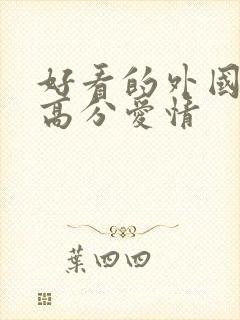 好看的外國
高分愛情
葉四四